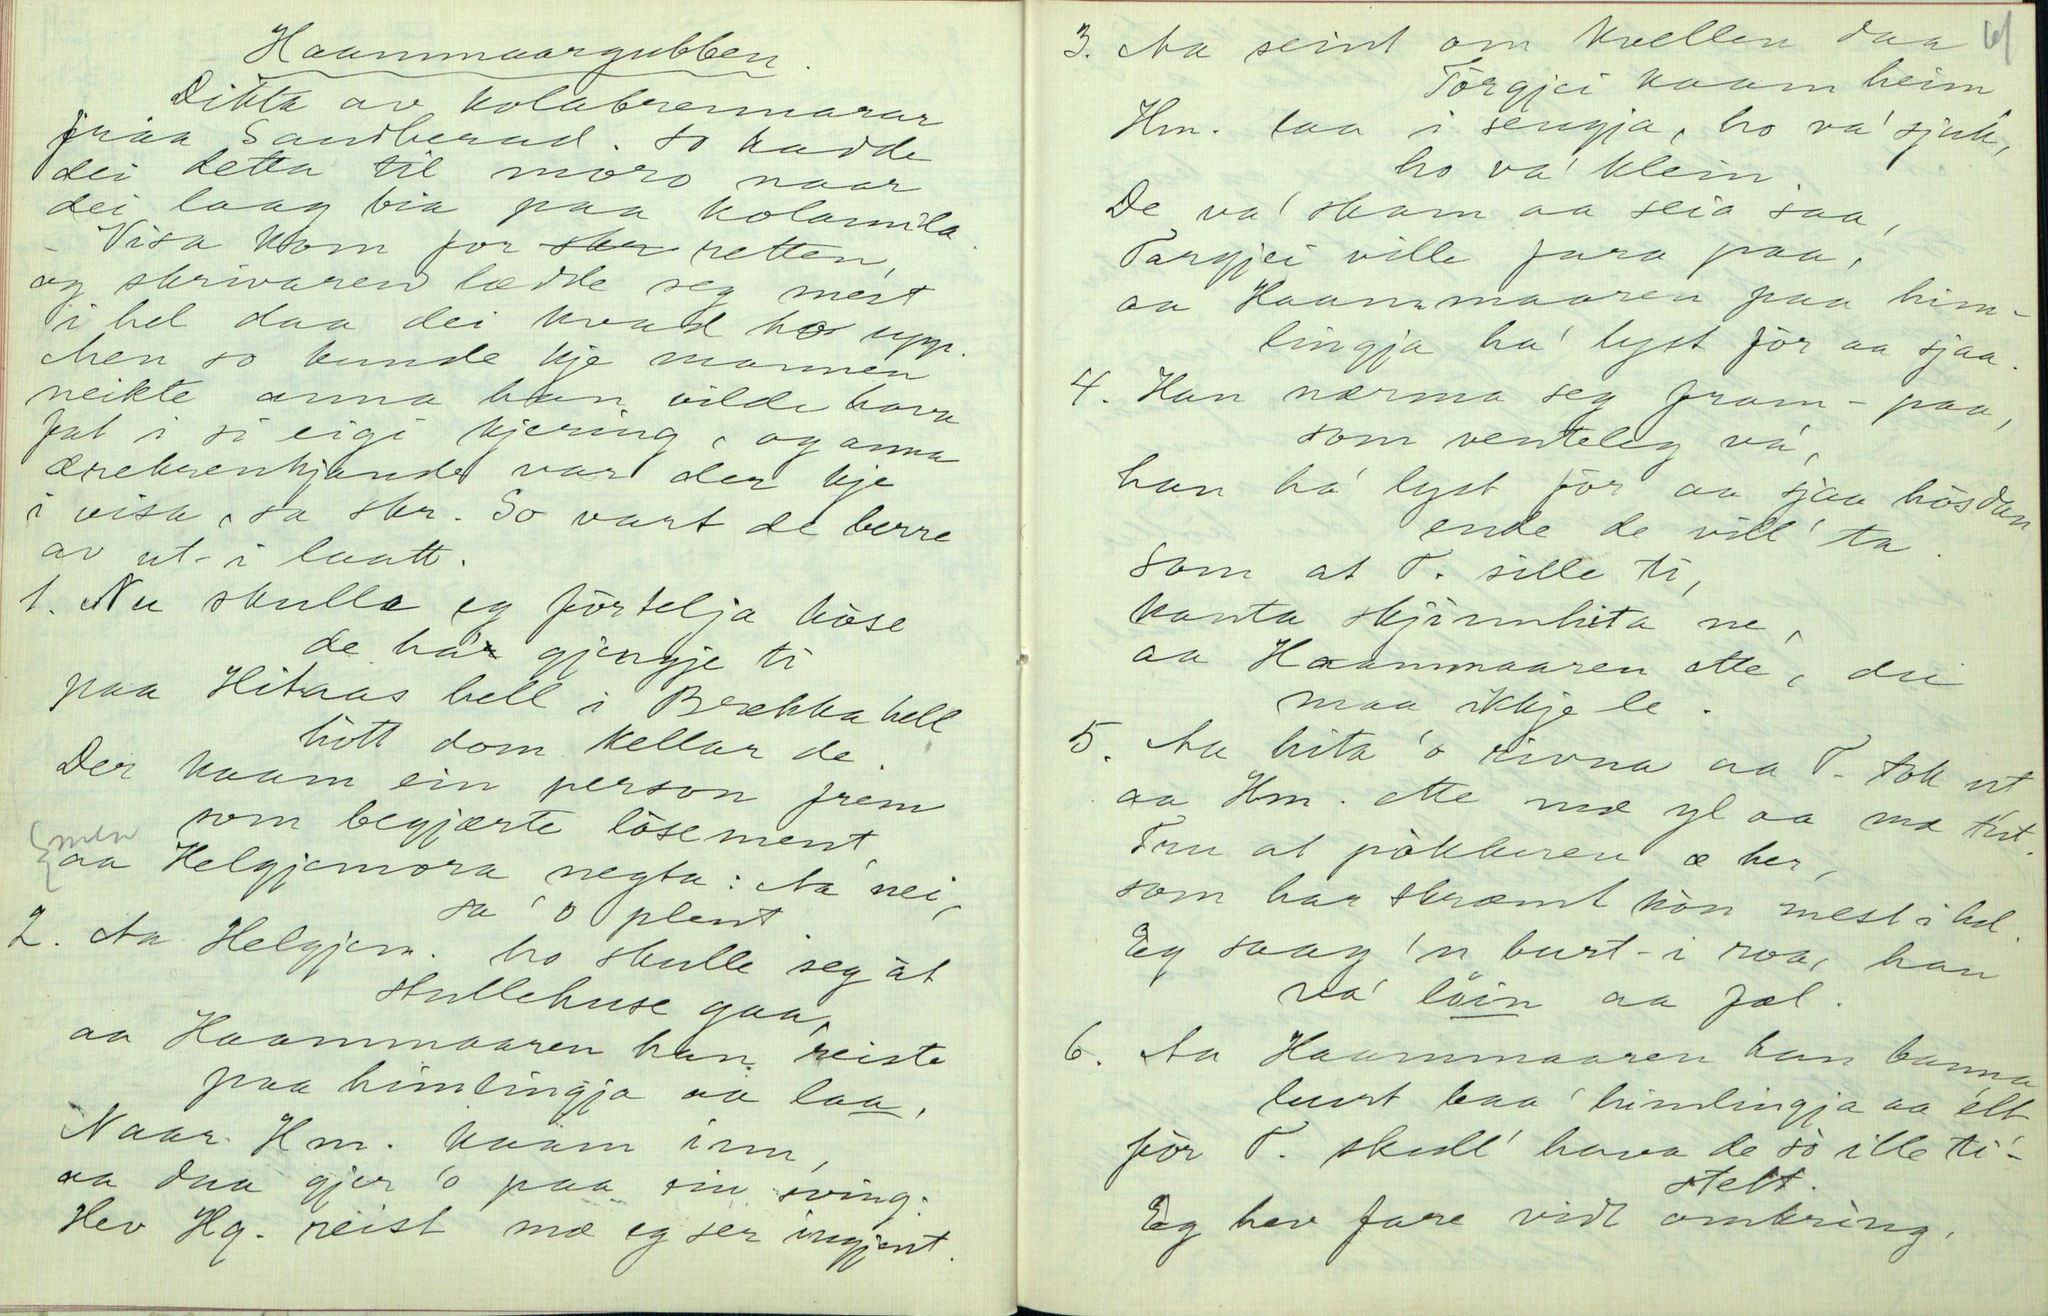 Haammaargubben.
Dikta av kolabrennarar
fraa Sandherad. So hadde
dei detta til moro naar
dei laag bia paa kolamila.
- Visa kom for skr retten,
og skrivaren lædde seg mest
i hel daa dei kvad ho upp.
Men so kunde kje mannen
neikte anna han vilde hava
fat i si eigi kjering, og anna
ærekrenkjande var der kje
i visa, sa skr. So vart de berre
av ut- i laatt.
1. Nu skulla eg förtelja hòse
de há'r gjengje ti
paa Hitaas hell i Brækka hell
hòtt dom kallar de.
Der kaam ein person frem
som begjærte lòsement,
men
aa Helgjemora negta: Aa nei,
sa' o plent.
2. Aa Helgjem. ho skulle seg àt
stullehuse gaa,
aa Haammaaren han reiste
paa himlingja aa laa,
Naar Hm. kaam inn,
aa daa gjer 'o paa sin sving.
Hev Hg. reist mæ eg ser ingjent.
61
3. Aa seint om kvellen daa
Törgjei kaam heim
Hm. laa i sengja, ho va' sjuk,
ho va' klein.
De va' skam aa seia saa,
Targjei ville fara paa,
aa Haammaaren paa him-
lingja ha' lyst för aa sjaa.
4. Han nærma seg fram-paa,
som venteleg va',
han ha' lyst för aa sjaa hòsdan
ende de vill' ta.
Som at T. sille ti,
kanta skjinnhita ne,
aa Haammaaren ette, dei
maa ikkje le.
5. Aa hita 'o rivna aa T. tok ut
aa Hm. ette mæ yl aa mæ tut.
Tru at pòkkeren æ her,
som har skræmt hòn mest i hel.
Eg saag 'n burt-i roa, han
va' löin aa fæl.
6. Aa Haammaaren han banna
burt baa' himlingja aa elt
för T. skull' hava de sò ille ti-
stelt.
Eg hev fare vidt omkring,